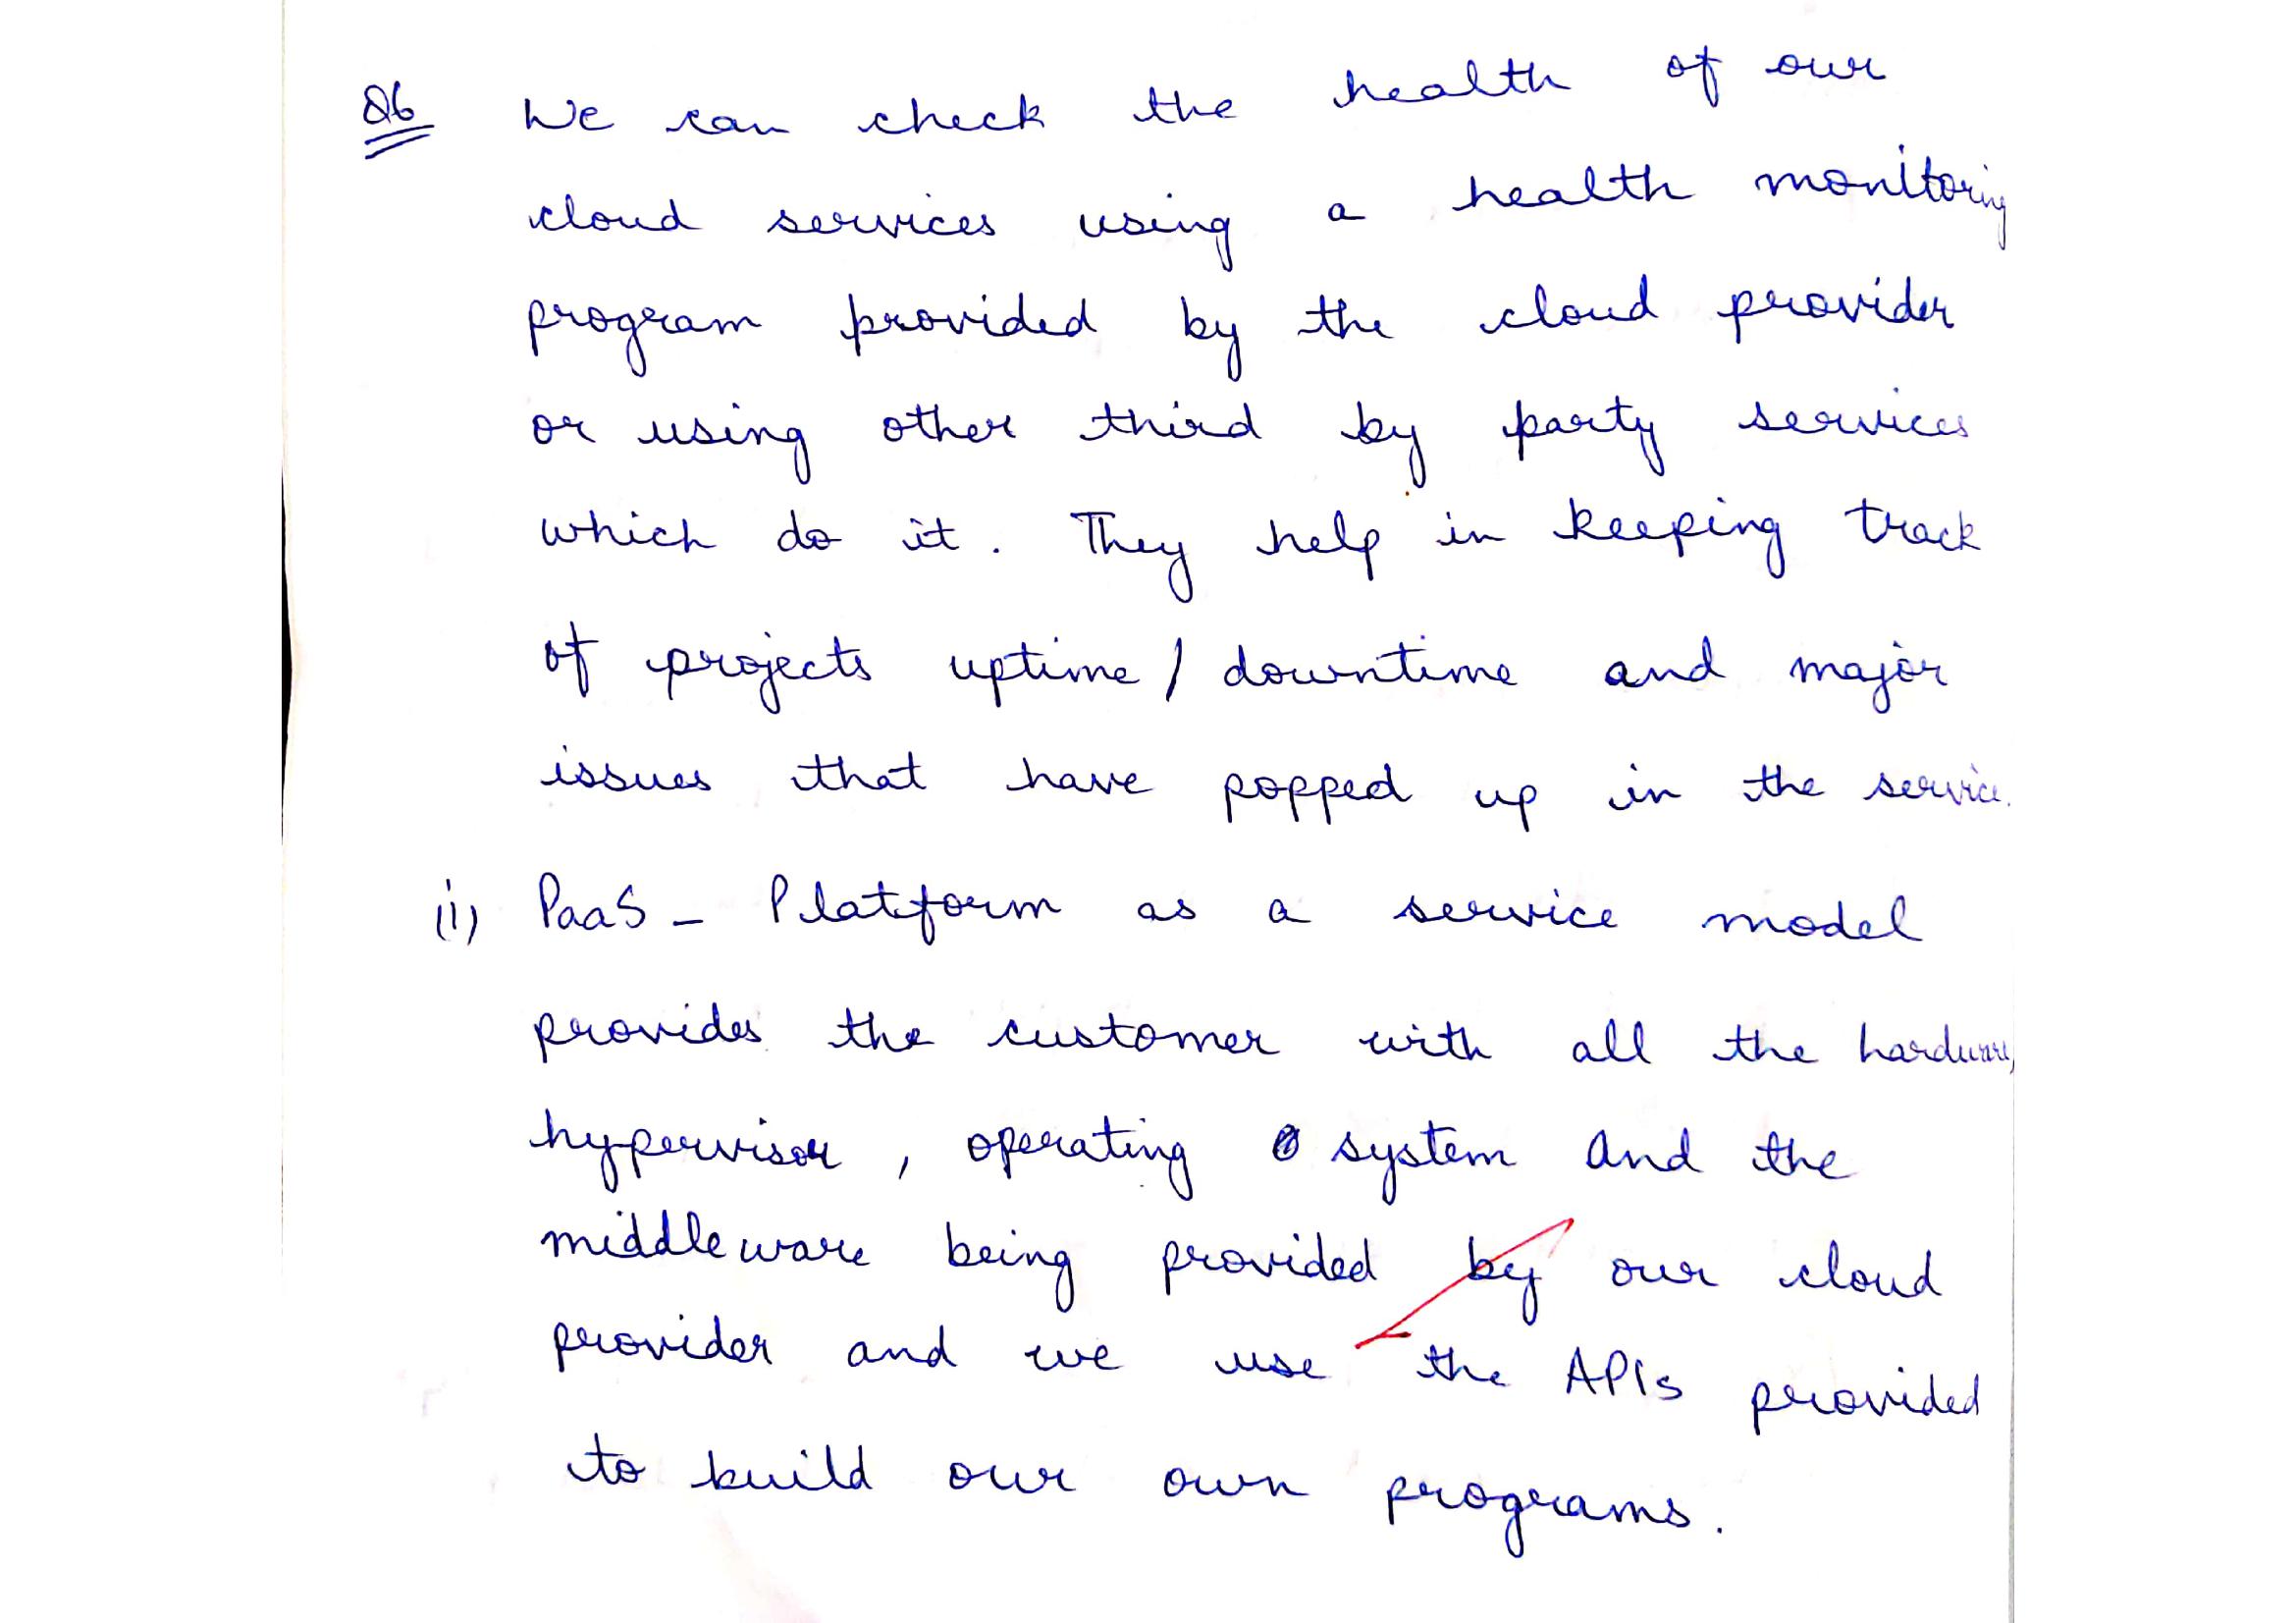 Q6 We can check the health of our
cloud services using a health monitoring
program provided by the cloud provider
or using other third by party services
which do it. They help in keeping track
of projects uptime / downtime and major
issues that have popped up in the service.
ii) PaaS - Platform as a service model
provides the customer with all the hardware,
hypervisor, operating system and the
middleware being provided by our cloud
provider and we use the APIs provided
to build our own programs.